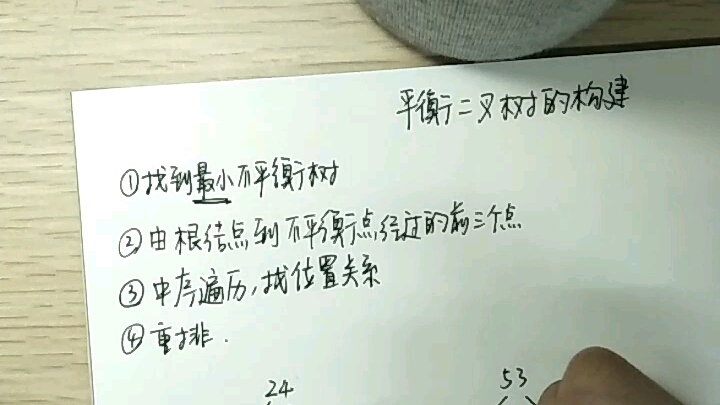 平衡二叉树的构建
①找到最小不平衡树
②由根结点到不平衡点经过的前三个点
③中序遍历,找位置关系
④重排.
24 53